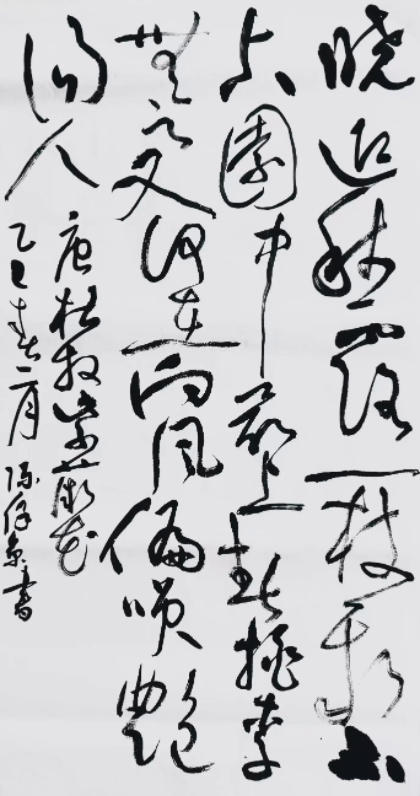 晓迎秋露一枝新不
占園中最上春桃李
無言又何在向风偏咲艶
阳人
唐杜牧紫薇花
乙巳春二月 書